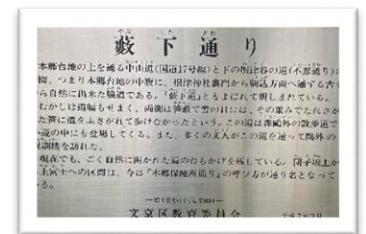 藪下通り
やぶしたどおり
本郷台地の上を通る中山道(国道17号線)と下の根津谷の道(不忍通り)の
間、つまり本郷台地の中腹に、根津神社裏門から駒込方面へ通する古く
から自然に出来た脇道である。「藪下道」ともよばれて親しまれている。
むかしは道幅もせまく、両側は笹藪で雪の日には、その重みでたれさが
った笹に道をふさがれて歩けなかったという。この道は森鷗外の散歩道で
小説の中にも登場してくる。また、多くの文人がこの道を通って鷗外の
観潮楼を訪れた。
現在でも、ごく自然に開かれた道のおもかげを残している。団子坂上か
ら上富士への区間は、今は「本郷保健所通り」の呼び方が通り名となって
いる。
文京区教育委員会